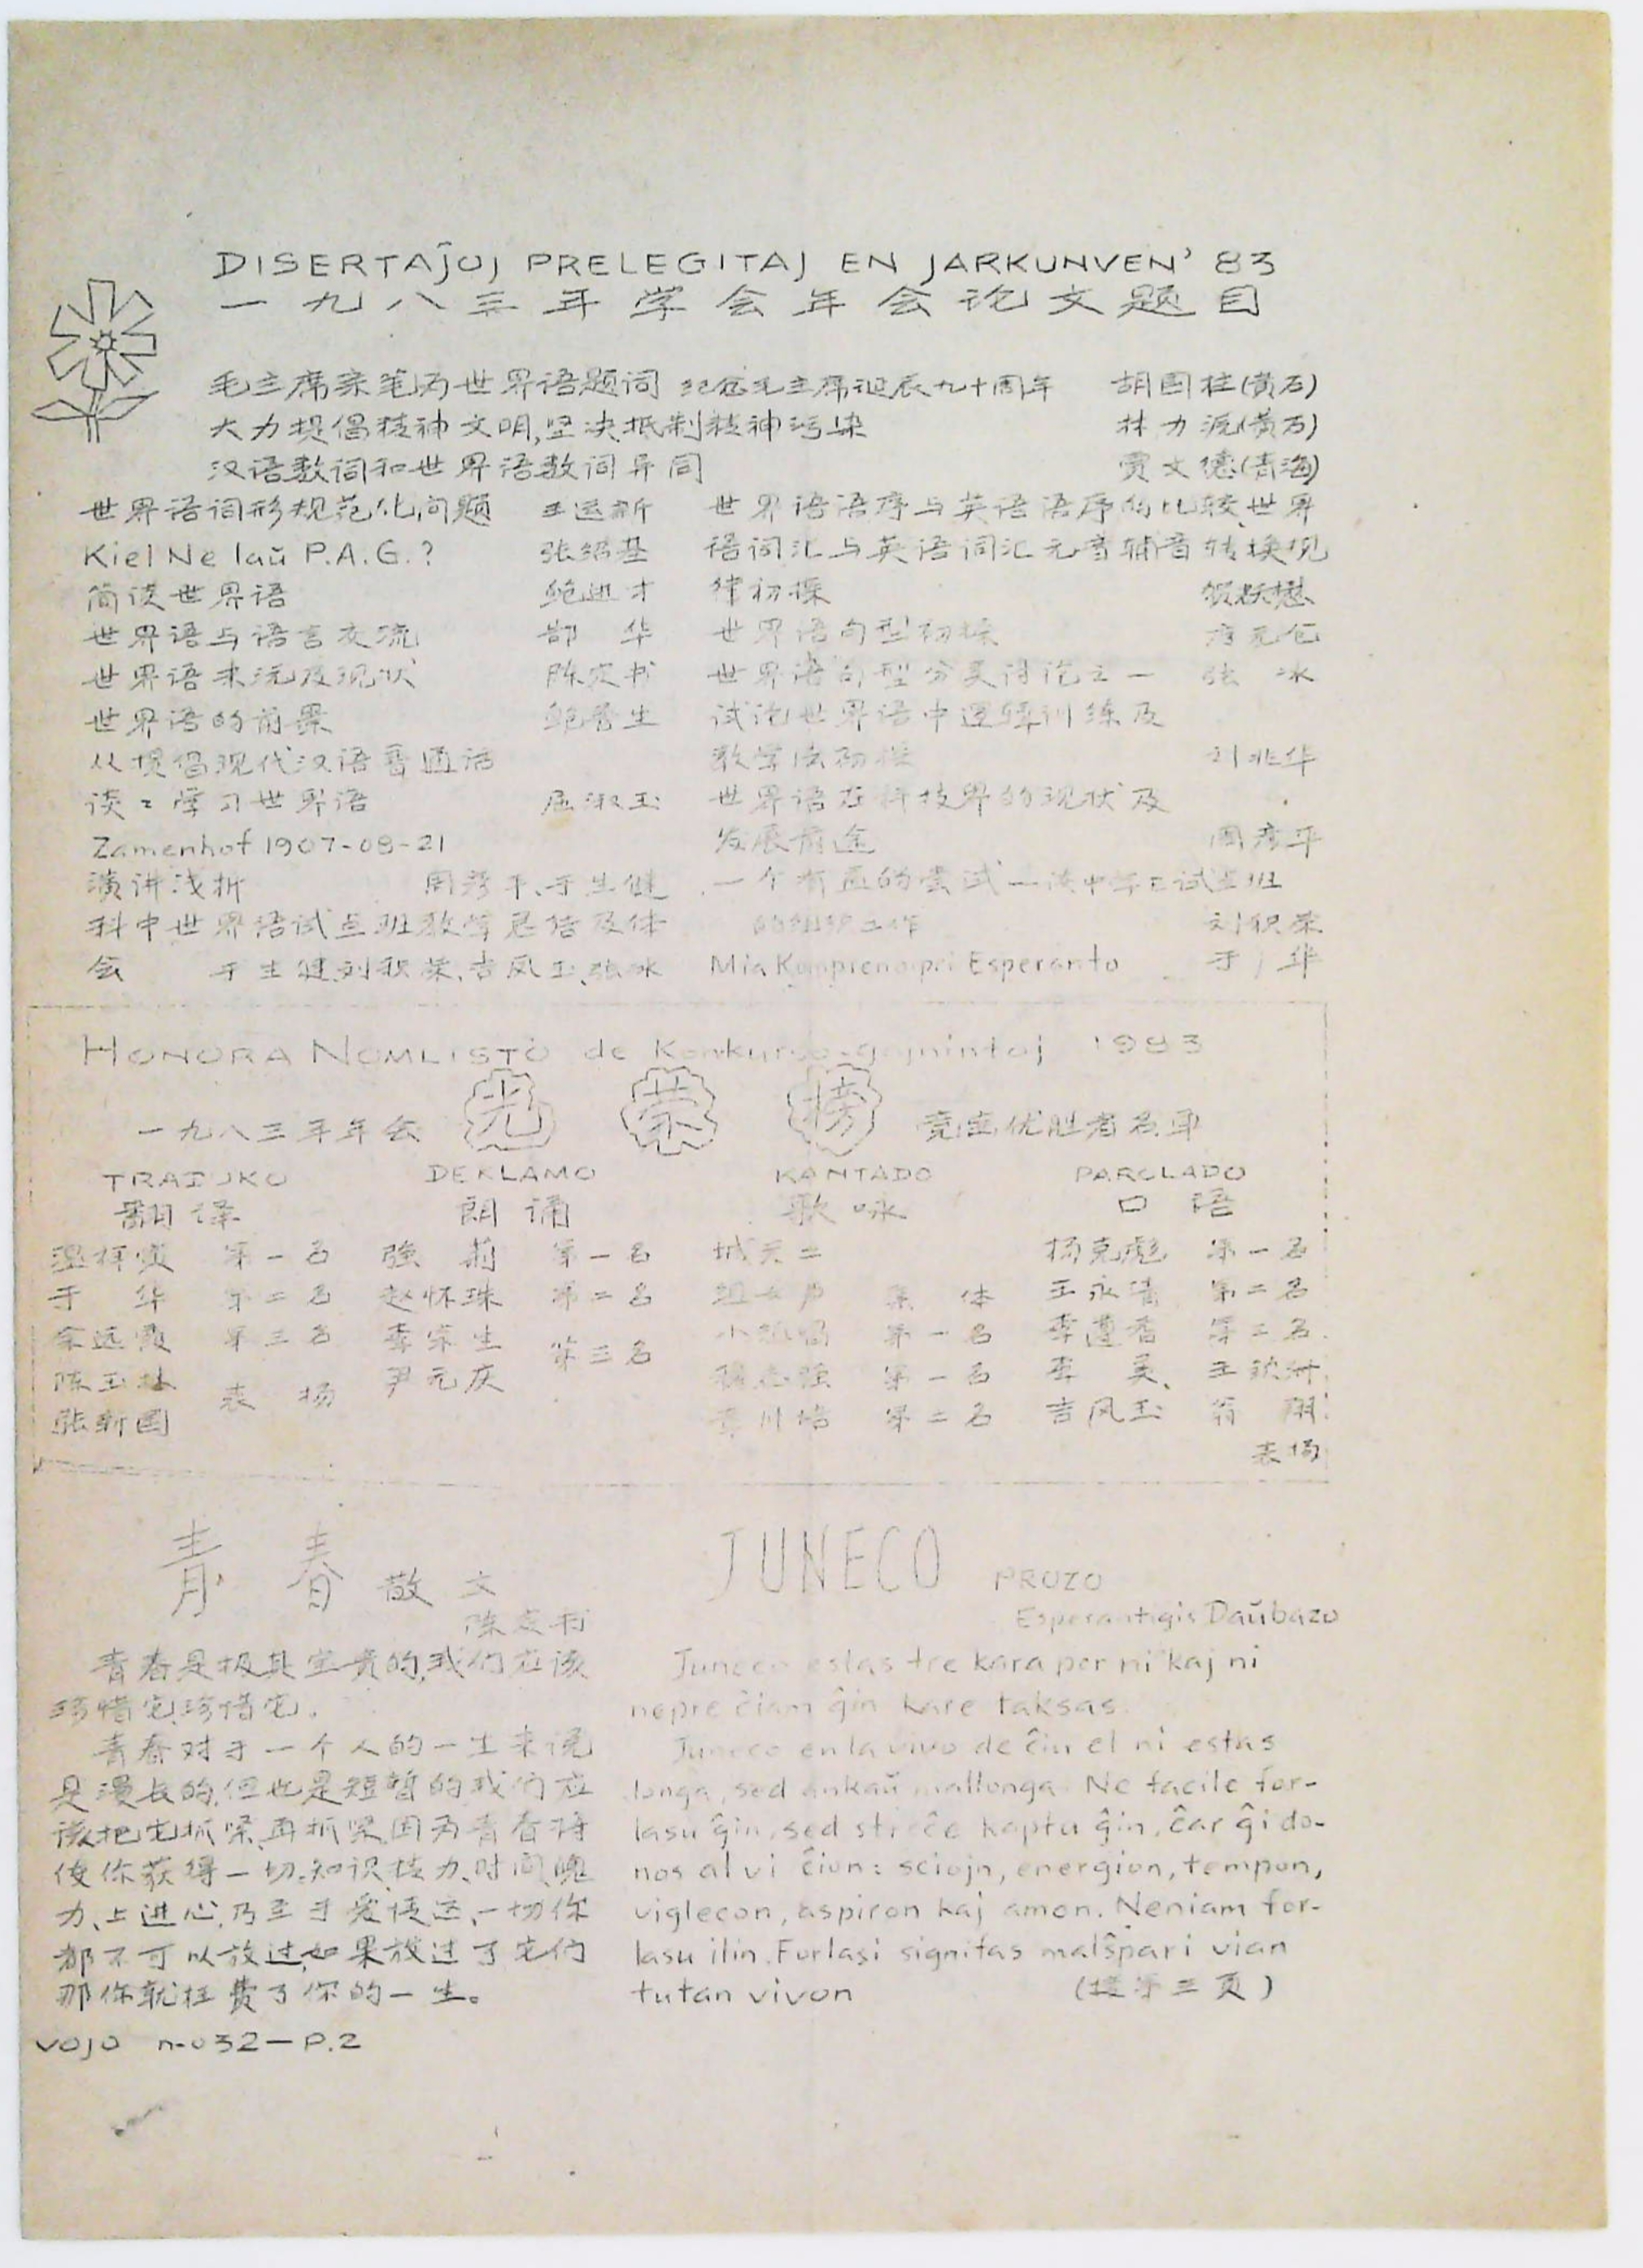 DISERTAĴOJ PRELEGITAJ EN JARKUNVEN' 83
一九八三年学会年会论文题目
毛主席亲笔为世界语题词 纪念毛主席诞辰九十周年 胡国柱(黄石)
大力提倡精神文明,坚决抵制精神污染 林力源(黄石)
汉语数词和世界语数词异同 贾文德(青海)
世界语词形规范化问题 王运新
Kiel Ne laŭ P.A.G.? 张绍基
简谈世界语 鲍进才
世界语与语言交流 部 华
世界语来源及现状 陈实书
世界语的前景 鲍善生
从提倡现代汉语普通话
谈:学习世界语 屈淑玉
Zamenhof 1907-08-21
演讲浅析 周彦平、于生健
科中世界语试点班教学总结及体
会 于生健、刘积荣、吉凤玉、张冰
世界语语序与英语语序的比较、世界
语词汇与英语词汇元音辅音转换规
律初探
世界语句型初探
世界语句型分类讨论之一 张 冰
试论世界语中逻辑训练及
教学法初探 刘兆华
世界语在科技界的现状及
发展前途 周彦平
一个有益的尝试—谈中学E试点班
的组织工作 刘积荣
Mia Kompreno pri Esperanto 于 华
HONORA NOMLISTO de Konkurso-gajnintoj 1983
一九八三年年会 光荣榜 竞赛优胜者名单
TRADUKO DEKLAMO KANTADO PAROLADO
翻译 朗诵 歌咏 口语
第一名 强 莉 第一名 城关二 杨克彪 第一名
于 华 第二名 赵怀珠 第二名 组女声 集 体 王永清 第二名
余远霞 第三名 李荣生 第三名 第一名 李莲香 第三名
陈玉林 表 扬 尹元庆 第一名 李 英、王钦洲
张新国 第二名 吉凤玉 翁 翔
表扬
青 春 散 文
JUNECO PROZO
Esperantigis Daŭbazo
青春是极其宝贵的,我们应该
珍惜它,珍惜它。
青春对于一个人的一生来说
是漫长的,但也是短暂的,我们应
该把它抓紧,再抓紧,因为青春将
使你获得一切:知识、技力、时间、魄
力、上进心,乃至于爱情,这一切你
都不可以放过,如果放过了它们
那你就枉费了你的一生。
Juneco estas tre kara por ni kaj ni
nepre ĉiam ĝin kare taksas.
Juneco en la vivo de ĉiu el ni estas
longa, sed ankaŭ mallonga. Ne facile for-
lasu ĝin, sed streĉe kaptu ĝin, ĉar ĝi do-
nos al vi ĉion: sciojn, energion, tempon,
viglecon, aspiron kaj amon. Neniam for-
lasu ilin. Forlasi signifas malŝpari vian
tutan vivon (接第三页)
VOJO n-032—P.2